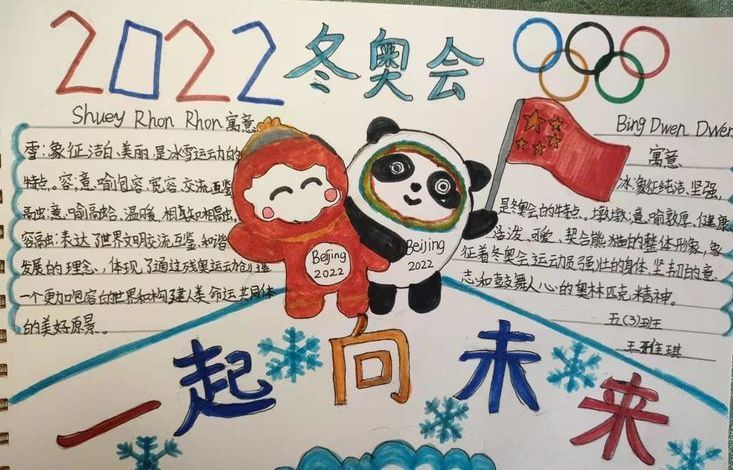 2022冬奥会
Shuey Rhon Rhon 寓意
雪:象征洁白、美丽,是冰雪运动的
特点。容:意喻包容、宽容,交流互鉴
融:意喻融合、温暖,相知相融。
容融:表达了世界文明交流互鉴、和谐
发展的理念,体现了通过残奥运动创造
一个更加包容的世界和构建人类命运共同体
的美好愿景。
Beijing
2022
Beijing
2022
Bing Dwen Dwen
寓意
冰:象征纯洁、坚强,
是冬奥会的特点。墩墩:意喻敦厚、健康、
活泼、可爱,契合熊猫的整体形象,象
征着冬奥会运动员强壮的身体、坚韧的意
志和鼓舞人心的奥林匹克精神。
五(3)班
王雅琪
一起向未来